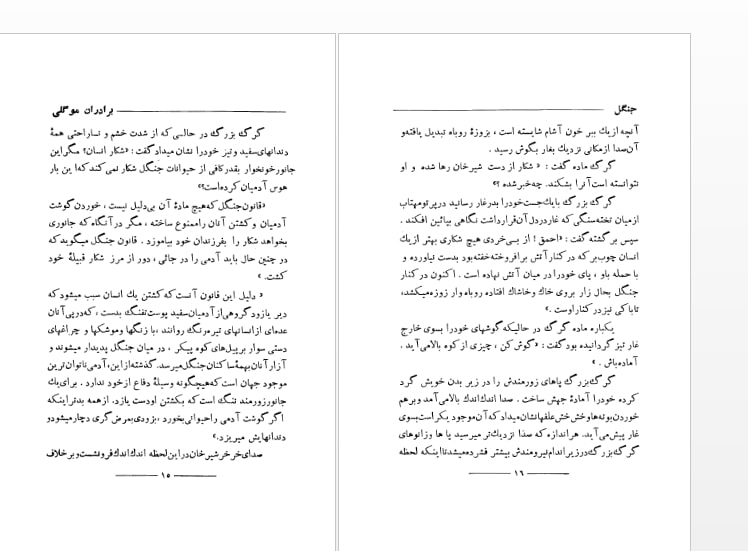 برادران موگلی
گرگ بزرگ در حالی که از شدت خشم و ناراحتی همهٔ
دندانهای سفید و تیز خودرا نشان میداد گفت: «شکار انسان؟ مگر این
جانور خونخوار بقدر کافی از حیوانات جنگل شکار نمی کند که این بار
هوس آدمیان کرده است؟»
«قانون جنگل که هیچ مادهٔ آن بی دلیل نیست ، خوردن گوشت
آدمیان و کشتن آنان را ممنوع ساخته ، مگر در آنگاه که جانوری
بخواهد شکار را بفرزندان خود بیاموزد . قانون جنگل میگوید که
در چنین حال باید آدمی را در جائی ، دور از مرز شکار قبیلهٔ خود
کشت. »
« دلیل این قانون آنست که کشتن یك انسان سبب میشود که
دیر یا زود گروهی از آدمیان سفید پوست تفنگ بدست ، که در پی آنان
عده‌ای از انسانهای تیره رنگ روانند ، با زنگها و موشکها و چراغهای
دستی سوار بر پیل‌های کوه پیکر ، در میان جنگل پدیدار میشوند و
آزار آنان بهمهٔ ساکنان جنگل میرسد. گذشته از این، آدمی ناتوان ترین
موجود جهان است که هیچگونه وسیلهٔ دفاع از خود ندارد . برای یك
جانور زورمند ننگ است که بکشتن او دست یازد. از همه بدتر اینکه
اگر گوشت آدمی را حیوانی بخورد ، بزودی بمرض گری دچار میشود و
دندانهایش میریزد.»
صدای خرخر شیرخان در این لحظه اندك اندك فرو نشست و بر خلاف
۱۵
جنگل
آنچه از یك ببر خون آشام شایسته است ، بزوزهٔ روباه تبدیل یافته و
آن صدا از مکانی نزدیك بغار بگوش رسید .
گرگ ماده گفت : « شکار از دست شیرخان رها شده و او
نتوانسته است آنرا بشکند. چه خبر شده ؟»
گرگ بزرگ با یك جست خودرا بدر غار رسانید در پرتو مهتاب
از میان تخته سنگی که غار در دل آن قرار داشت نگاهی بپائین افکند .
سپس بر گشته گفت : «احمق ! از بی خردی هیچ شکاری بهتر از یك
انسان چوب بر که در کنار آتش برافروخته خفته بود بدست نیاورده و
با حمله باو ، پای خودرا در میان آتش نهاده است . اکنون در کنار
جنگل بحال زار بروی خاك و خاشاك افتاده روباه وار زوزه میکشد،
تاباکی نیز در کنار اوست .»
یکباره ماده گرگ در حالیکه گوشهای خودرا بسوی خارج
غار تیز گردانیده بود گفت : «گوش کن ، چیزی از کوه بالا می آید .
آماده باش . »
گرگ بزرگ پاهای زورمندش را در زیر بدن خویش گرد
کرده خودرا آمادهٔ جهش ساخت . صدا اندك اندك بالا می آمد و برهم
خوردن بوته‌ها و خش خش علفها نشان میداد که آن موجود یکراست بسوی
غار پیش می آید. هر اندازه که صدا نزدیك تر میرسید پا ها و زانوهای
گرگ بزرگ در زیر اندام نیرومندش بیشتر فشرده میشد تا اینکه لحظه
۱۶